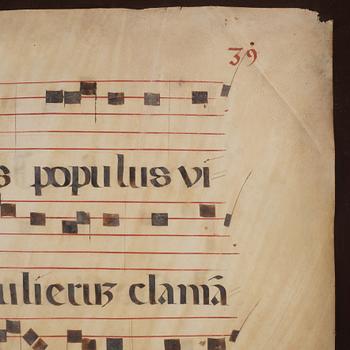 39
s populus vi
ulierib3 clamā